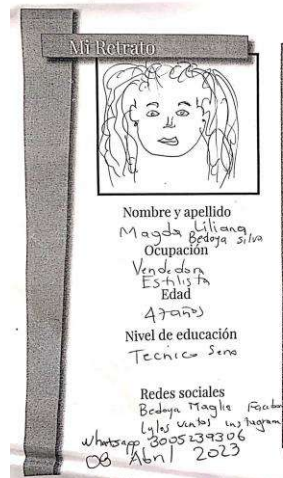 Mi Retrato
Nombre y apellido
Magda Liliana
Bedoya Silva
Ocupación
Vendedora
Estilista
Edad
47años
Nivel de educación
Tecnico Sena
Redes sociales
Bedoya Maglis Facebo
Lyles ventas instagram
whatsapp 3005239306
08 Abril 2023